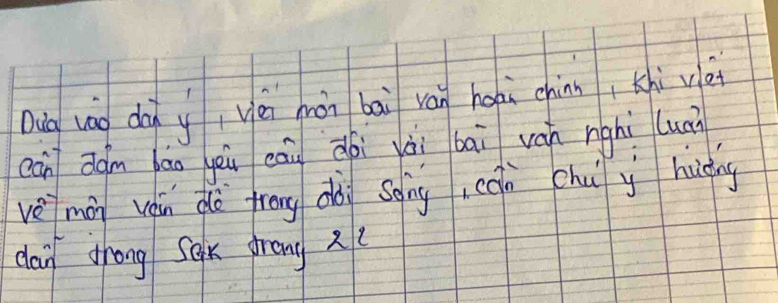 Dựa vào dàn ý, viết một bài văn hoàn chỉnh, khi viết
cần đảm bảo yêu cầu đối với bài văn nghị luận
về một vấn đề trong đời sống, cần chú ý hướng
dẫn trong SGK trang 22